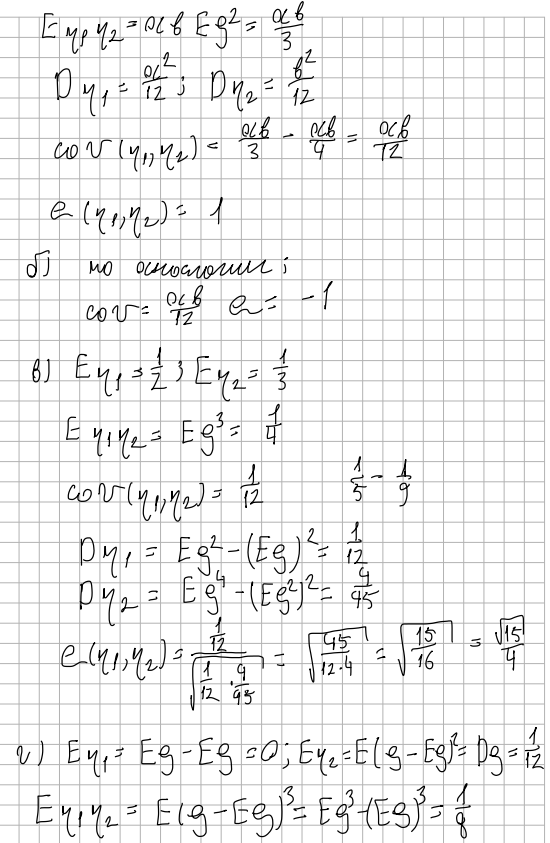 Eη₁η₂ = αβ Eξ² = αβ/3
Dη₁ = α²/12; Dη₂ = β²/12
cov(η₁,η₂) = αβ/3 - αβ/4 = αβ/12
ρ(η₁,η₂) = 1
б) по аналогии;
cov = αβ/12 ρ = -1
в) Eη₁ = 1/2; Eη₂ = 1/3
Eη₁η₂ = Eξ³ = 1/4
cov(η₁,η₂) = 1/12 1/5 - 1/9
Dη₁ = Eξ² - (Eξ)² = 1/12
Dη₂ = Eξ⁴ - (Eξ²)² = 4/45
ρ(η₁,η₂) = (1/12)/√(1/12 · 4/45) = √(45/(12·4)) = √(15/16) = √15/4
г) Eη₁ = Eξ - Eξ = 0; Eη₂ = E(ξ - Eξ)² = Dξ = 1/12
Eη₁η₂ = E(ξ - Eξ)³ = Eξ³ - (Eξ)³ = 1/8